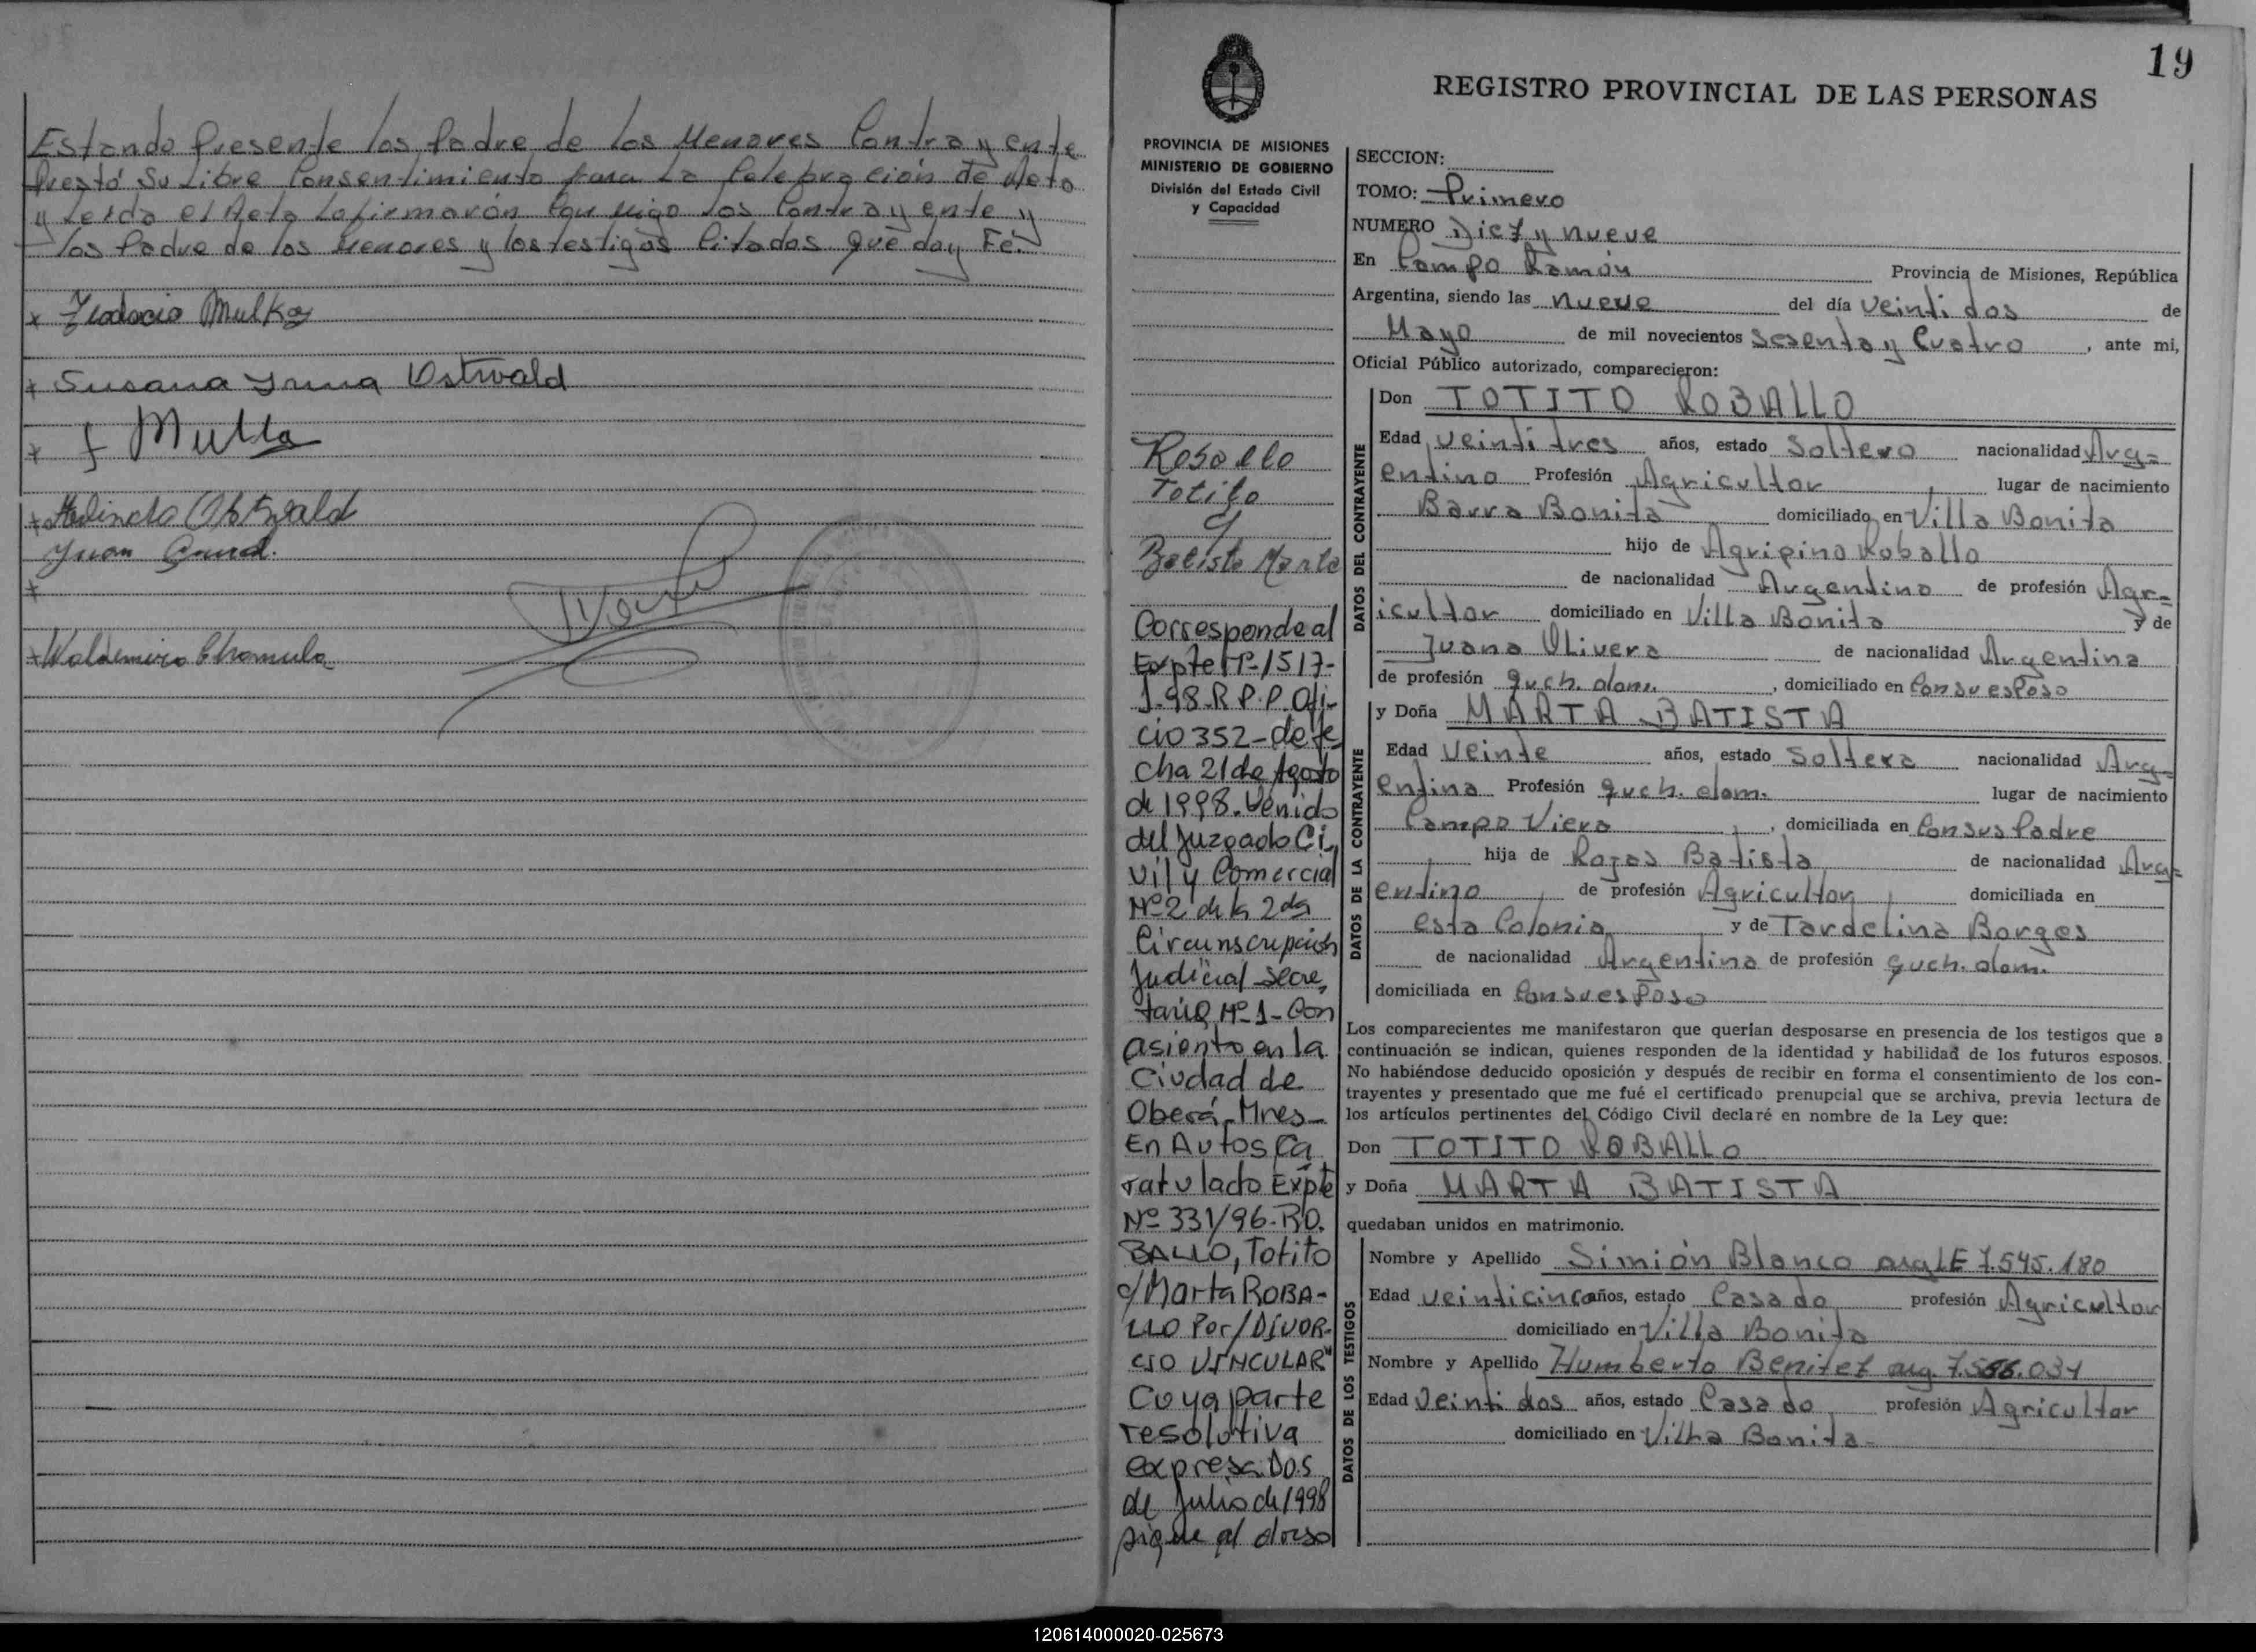 Estando Presente los Padre de los Menores Contrayente
Prestó su Libre Consentimiento para La Celebración de Acto
y Leida el Acta La firmarón Con migo los Contrayente y
los Padre de los Menores y los testigos Citados que doy Fé.
x Teodocio Mulka
x Susana Irma Ostwald
x f Mulka
x Ostwald
Juan
x
x Waldemiro Chamula
19
REGISTRO PROVINCIAL DE LAS PERSONAS
PROVINCIA DE MISIONES
MINISTERIO DE GOBIERNO
División del Estado Civil
y Capacidad
Roballo
Totito
y
Batista Marta
Corresponde al
Expte P-1517-
J-98-R P.P. Ofi-
cio 352-de fe
cha 21 de Agosto
de 1998. Venido
del Juzgado Ci
vil y Comercial
Nº 2 de la 2da
Circunscripción
Judicial Secre,
taría Nº 1- Con
asiento en la
Ciudad de
Oberá-Mnes-
En Autos Ca
ratulado Expte
Nº 331/96-RO.
BALLO, Totito
c/Marta ROBA-
LLO Por/DIVOR-
CIO VINCULAR"
Cuya parte
resolutiva
expresa: Dos
de Julio de 1998
sigue al dorso
SECCION:
TOMO: Primero
NUMERO Diez y nueve
En Campo Ramón Provincia de Misiones, República
Argentina, siendo las nueve del día veintidos de
Mayo de mil novecientos Sesenta y Cuatro , ante mi,
Oficial Público autorizado, comparecieron:
DATOS DEL CONTRAYENTE
Don TOTITO ROBALLO
Edad veintitres años, estado Soltero nacionalidad Arg=
entino Profesión Agricultor lugar de nacimiento
Barra Bonita domiciliado en Villa Bonita
hijo de Agripino Roballo
de nacionalidad Argentino de profesión Agr=
icultor domiciliado en Villa Bonita y de
Juana Olivera de nacionalidad Argentina
de profesión queh. dom. , domiciliado en Con su esposo
DATOS DE LA CONTRAYENTE
y Doña MARTA BATISTA
Edad veinte años, estado Soltera nacionalidad Arg=
entina Profesión queh. dom. lugar de nacimiento
Campo Viera , domiciliada en Con sus Padre
hija de Rojas Batista de nacionalidad Arg=
entino de profesión Agricultor domiciliada en
esta Colonia y de Tardelina Borges
de nacionalidad Argentina de profesión queh. dom.
domiciliada en Con su esposo
Los comparecientes me manifestaron que querían desposarse en presencia de los testigos que a
continuación se indican, quienes responden de la identidad y habilidad de los futuros esposos.
No habiéndose deducido oposición y después de recibir en forma el consentimiento de los con-
trayentes y presentado que me fué el certificado prenupcial que se archiva, previa lectura de
los artículos pertinentes del Código Civil declaré en nombre de la Ley que:
Don TOTITO ROBALLO
y Doña MARTA BATISTA
quedaban unidos en matrimonio.
DATOS DE LOS TESTIGOS
Nombre y Apellido Simión Blanco arg LE 7.545.180
Edad veinticinco años, estado Casado profesión Agricultor
domiciliado en Villa Bonita
Nombre y Apellido Humberto Benitez arg.
Edad Veintidos años, estado Casado profesión Agricultor
domiciliado en Villa Bonita-
120614000020-025673